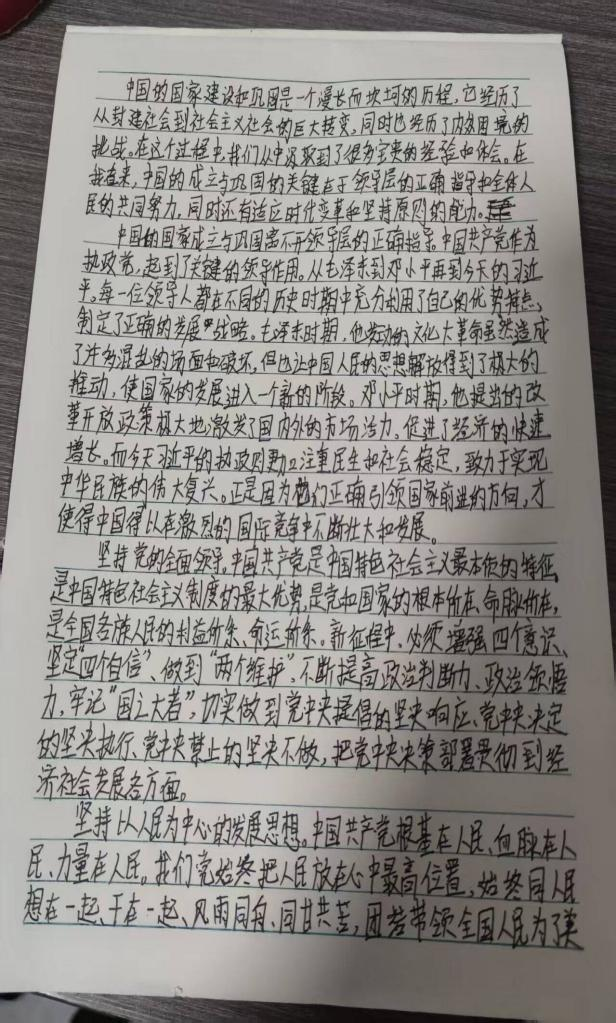 中国的国家建设和巩固是一个漫长而坎坷的历程，它经历了
从封建社会到社会主义社会的巨大转变，同时也经历了内外困境的
挑战。在这个过程中，我们从中汲取到了很多宝贵的经验和体会。在
我看来，中国的成立与巩固的关键在于领导层的正确指导和全体人
民的共同努力，同时还有适应时代变革和坚持原则的能力。
中国的国家成立与巩固离不开领导层的正确指导。中国共产党作为
执政党，起到了关键的领导作用。从毛泽东到邓小平再到今天的习近
平。每一位领导人都在不同的历史时期中充分利用了自己的优势特点，
制定了正确的发展战略。毛泽东时期，他发动的文化大革命虽然造成
了许多混乱的场面和破坏，但也让中国人民的思想解放得到了极大的
推动，使国家的发展进入一个新的阶段。邓小平时期，他提出的改
革开放政策极大地激发了国内外的市场活力，促进了经济的快速
增长。而今天习近平的执政则更加注重民生和社会稳定，致力于实现
中华民族的伟大复兴。正是因为他们正确引领国家前进的方向，才
使得中国得以在激烈的国际竞争中不断壮大和发展。
坚持党的全面领导。中国共产党是中国特色社会主义最本质的特征，
是中国特色社会主义制度的最大优势，是党和国家的根本所在、命脉所在，
是全国各族人民的利益所系、命运所系。新征程中，必须增强"四个意识、
坚定"四个自信"、做到"两个维护"，不断提高政治判断力、政治领悟
力，牢记"国之大者"，切实做到党中央提倡的坚决响应、党中央决定
的坚决执行、党中央禁止的坚决不做，把党中央决策部署贯彻到经
济社会发展各方面。
坚持以人民为中心的发展思想。中国共产党根基在人民、血脉在人
民、力量在人民。我们党始终把人民放在心中最高位置，始终同人民
想在一起、干在一起、风雨同舟、同甘共苦，团结带领全国人民为了美